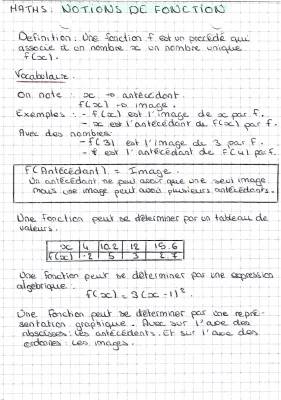 MATHS: NOTIONS DE FONCTION
Définition: Une fonction f est un procédé qui
associe à un nombre x un nombre unique
f(x).
Vocabulaire.
On note : x → antécédent.
f(x) → image.
Exemples : - f(x) est l'image de x par f.
- x est l'antécédent de f(x) par f.
Avec des nombres:
- f(3) est l'image de 3 par f.
- est l'antécédent de f(4) par f.
f(Antécédant) = Image.
Un antécédent ne peut avoir que une seul image
mais une image peut avoir plusieurs antécédents.
Une fonction peut se déterminer par un tableau de
valeurs.
x 4 10.2 12 15.6
f(x) -2 5 3 2.7
Une fonction peut se déterminer par une expression
algébrique :
f(x) = 3(x-1)².
Une fonction peut se déterminer par une repré-
sentation graphique. Avec sur l'axe des
abscisses: Les antécédents. Et sur l'axe des
ordonnées: Les images.